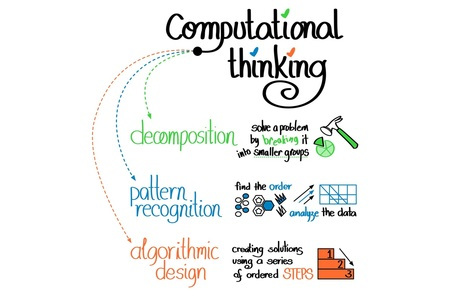 Computational
thinking
decomposition
solve a problem
by breaking it
into smaller groups
pattern
recognition
find the order
analyze the data
algorithmic
design
creating solutions
using a series
of ordered STEPS
1
2
3